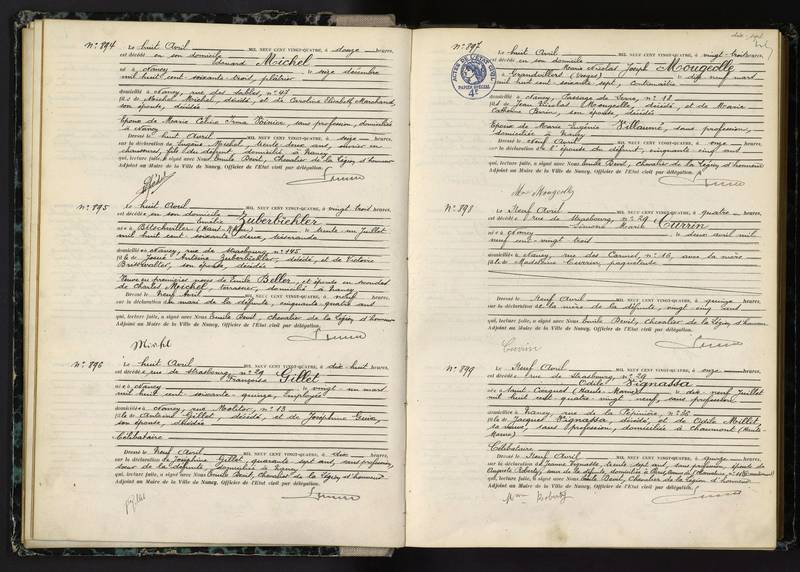 N° 894
Le huit Avril MIL NEUF CENT VINGT-QUATRE, à douze heures,
est décédé en son domicile
Edouard Michel
né à Nancy, le seize décembre
mil huit cent soixante-trois, plâtrier
domicilié à Nancy, rue des Sables, n° 47
fils de Michel, décédé, et de Caroline Elisabeth Marchand,
son épouse, décédée
Epoux de Marie Célina Irma, sans profession, domiciliée
à Nancy
Dressé le huit Avril MIL NEUF CENT VINGT-QUATRE, à seize heures,
sur la déclaration de Eugène Michel, trente deux ans, ouvrier en
chaussures, fils du défunt, domicilié à Nancy
qui, lecture faite, a signé avec Nous Emile Chevalier de la Légion d'honneur
Adjoint au Maire de la Ville de Nancy, Officier de l'Etat civil par délégation.
N° 895
Le huit Avril MIL NEUF CENT VINGT-QUATRE, à vingt trois heures,
est décédée en son domicile
Emélie Zuberbichler
née à Bitschwiller (Haut-Rhin) le trente un Juillet
mil huit cent soixante deux, tisserande
domiciliée à Nancy, rue de Strasbourg, n° 145
fille de Antoine Zuberbichler, décédé, et de Victoire
son épouse, décédée
Veuve en premières noces de Emile Beller, et épouse en secondes
de Charles Michel, terrassier, domicilié à Nancy
Dressé le Neuf Avril MIL NEUF CENT VINGT-QUATRE, à neuf heures,
sur la déclaration du mari de la défunte, cinquante quatre ans
qui, lecture faite, a signé avec Nous Emile chevalier de la Légion d'honneur
Adjoint au Maire de la Ville de Nancy, Officier de l'Etat civil par délégation.
Michel
N° 896
Le huit Avril MIL NEUF CENT VINGT-QUATRE, à dix-huit heures,
est décédée rue de Strasbourg, n° 29
Françoise Gillet
née à Nancy le vingt-un mars
mil huit cent soixante-quinze, employée
domiciliée à Nancy, rue Molitor, n° 13
fille de Gillet, décédé, et de Joséphine
son épouse, décédée
Célibataire
Dressé le Neuf Avril MIL NEUF CENT VINGT-QUATRE, à dix heures,
sur la déclaration de Joséphine Gillet, quarante sept ans, sans profession,
soeur de la défunte, domiciliée à Nancy
qui, lecture faite, a signé avec Nous Emile Chevalier de la Légion d'honneur
Adjoint au Maire de la Ville de Nancy, Officier de l'Etat civil par délégation.
N° 897
Le huit Avril MIL NEUF CENT VINGT-QUATRE, à vingt-trois heures,
est décédé en son domicile
Nicolas Joseph Mougeolle
né à Grandvillers (Vosges) le dix neuf mars
mil huit cent soixante sept,
PAPIER SPÉCIAL
domicilié à Nancy, n° 18
fils de Jean Nicolas Mougeolle, décédé, et de Marie
Catherine son épouse, décédée
Epoux de Marie Eugénie Villaumé, sans profession,
domiciliée à Nancy
Dressé le Neuf Avril MIL NEUF CENT VINGT-QUATRE, à onze heures,
sur la déclaration de l'épouse du défunt, cinquante cinq ans
qui, lecture faite, a signé avec Nous Emile Chevalier de la Légion d'honneur
Adjoint au Maire de la Ville de Nancy, Officier de l'Etat civil par délégation.
Mougeolle
N° 898
Le Neuf Avril MIL NEUF CENT VINGT-QUATRE, à quatre heures,
est décédée rue de Strasbourg, n° 29
Simone Marie Currin
née à Nancy le deux avril mil
neuf cent vingt trois
domiciliée à Nancy, rue des Carmes, n° 16, avec sa mère
fille de Madeleine Currin, paqueteuse
Dressé le Neuf Avril MIL NEUF CENT VINGT-QUATRE, à quinze heures,
sur la déclaration de la mère de la défunte, vingt cinq ans
qui, lecture faite, a signé avec Nous Emile Chevalier de la Légion d'honneur
Adjoint au Maire de la Ville de Nancy, Officier de l'Etat civil par délégation.
Currin
N° 899
Le Neuf Avril MIL NEUF CENT VINGT-QUATRE, à onze heures,
est décédée rue de Strasbourg, n° 29
Odile Vignassa
née à (Haute-Marne) le dix neuf Juillet
mil huit cent quatre vingt neuf, sans profession
domiciliée à Nancy, rue de la Pépinière, n° 36
fille de Jacques Vignassa, décédé, et de Odile Millet,
sa veuve, sans profession, domiciliée à Chaumont (Haute
Marne)
Célibataire
Dressé le Neuf Avril MIL NEUF CENT VINGT-QUATRE, à quinze heures,
sur la déclaration de Jeanne Vignassa, trente sept ans, sans profession, épouse de
soeur de la défunte, domiciliée à
qui, lecture faite, a signé avec Nous Emile Chevalier de la Légion d'honneur
Adjoint au Maire de la Ville de Nancy, Officier de l'Etat civil par délégation.